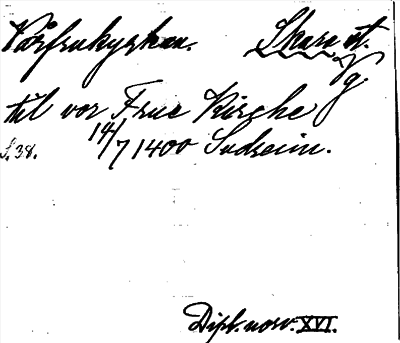 Vårfrukyrkan. Skara st.
Vg
til vor Frue Kirche
S. 38. 14/7 1400 Sudreim.
Dipl. norv. XVI.